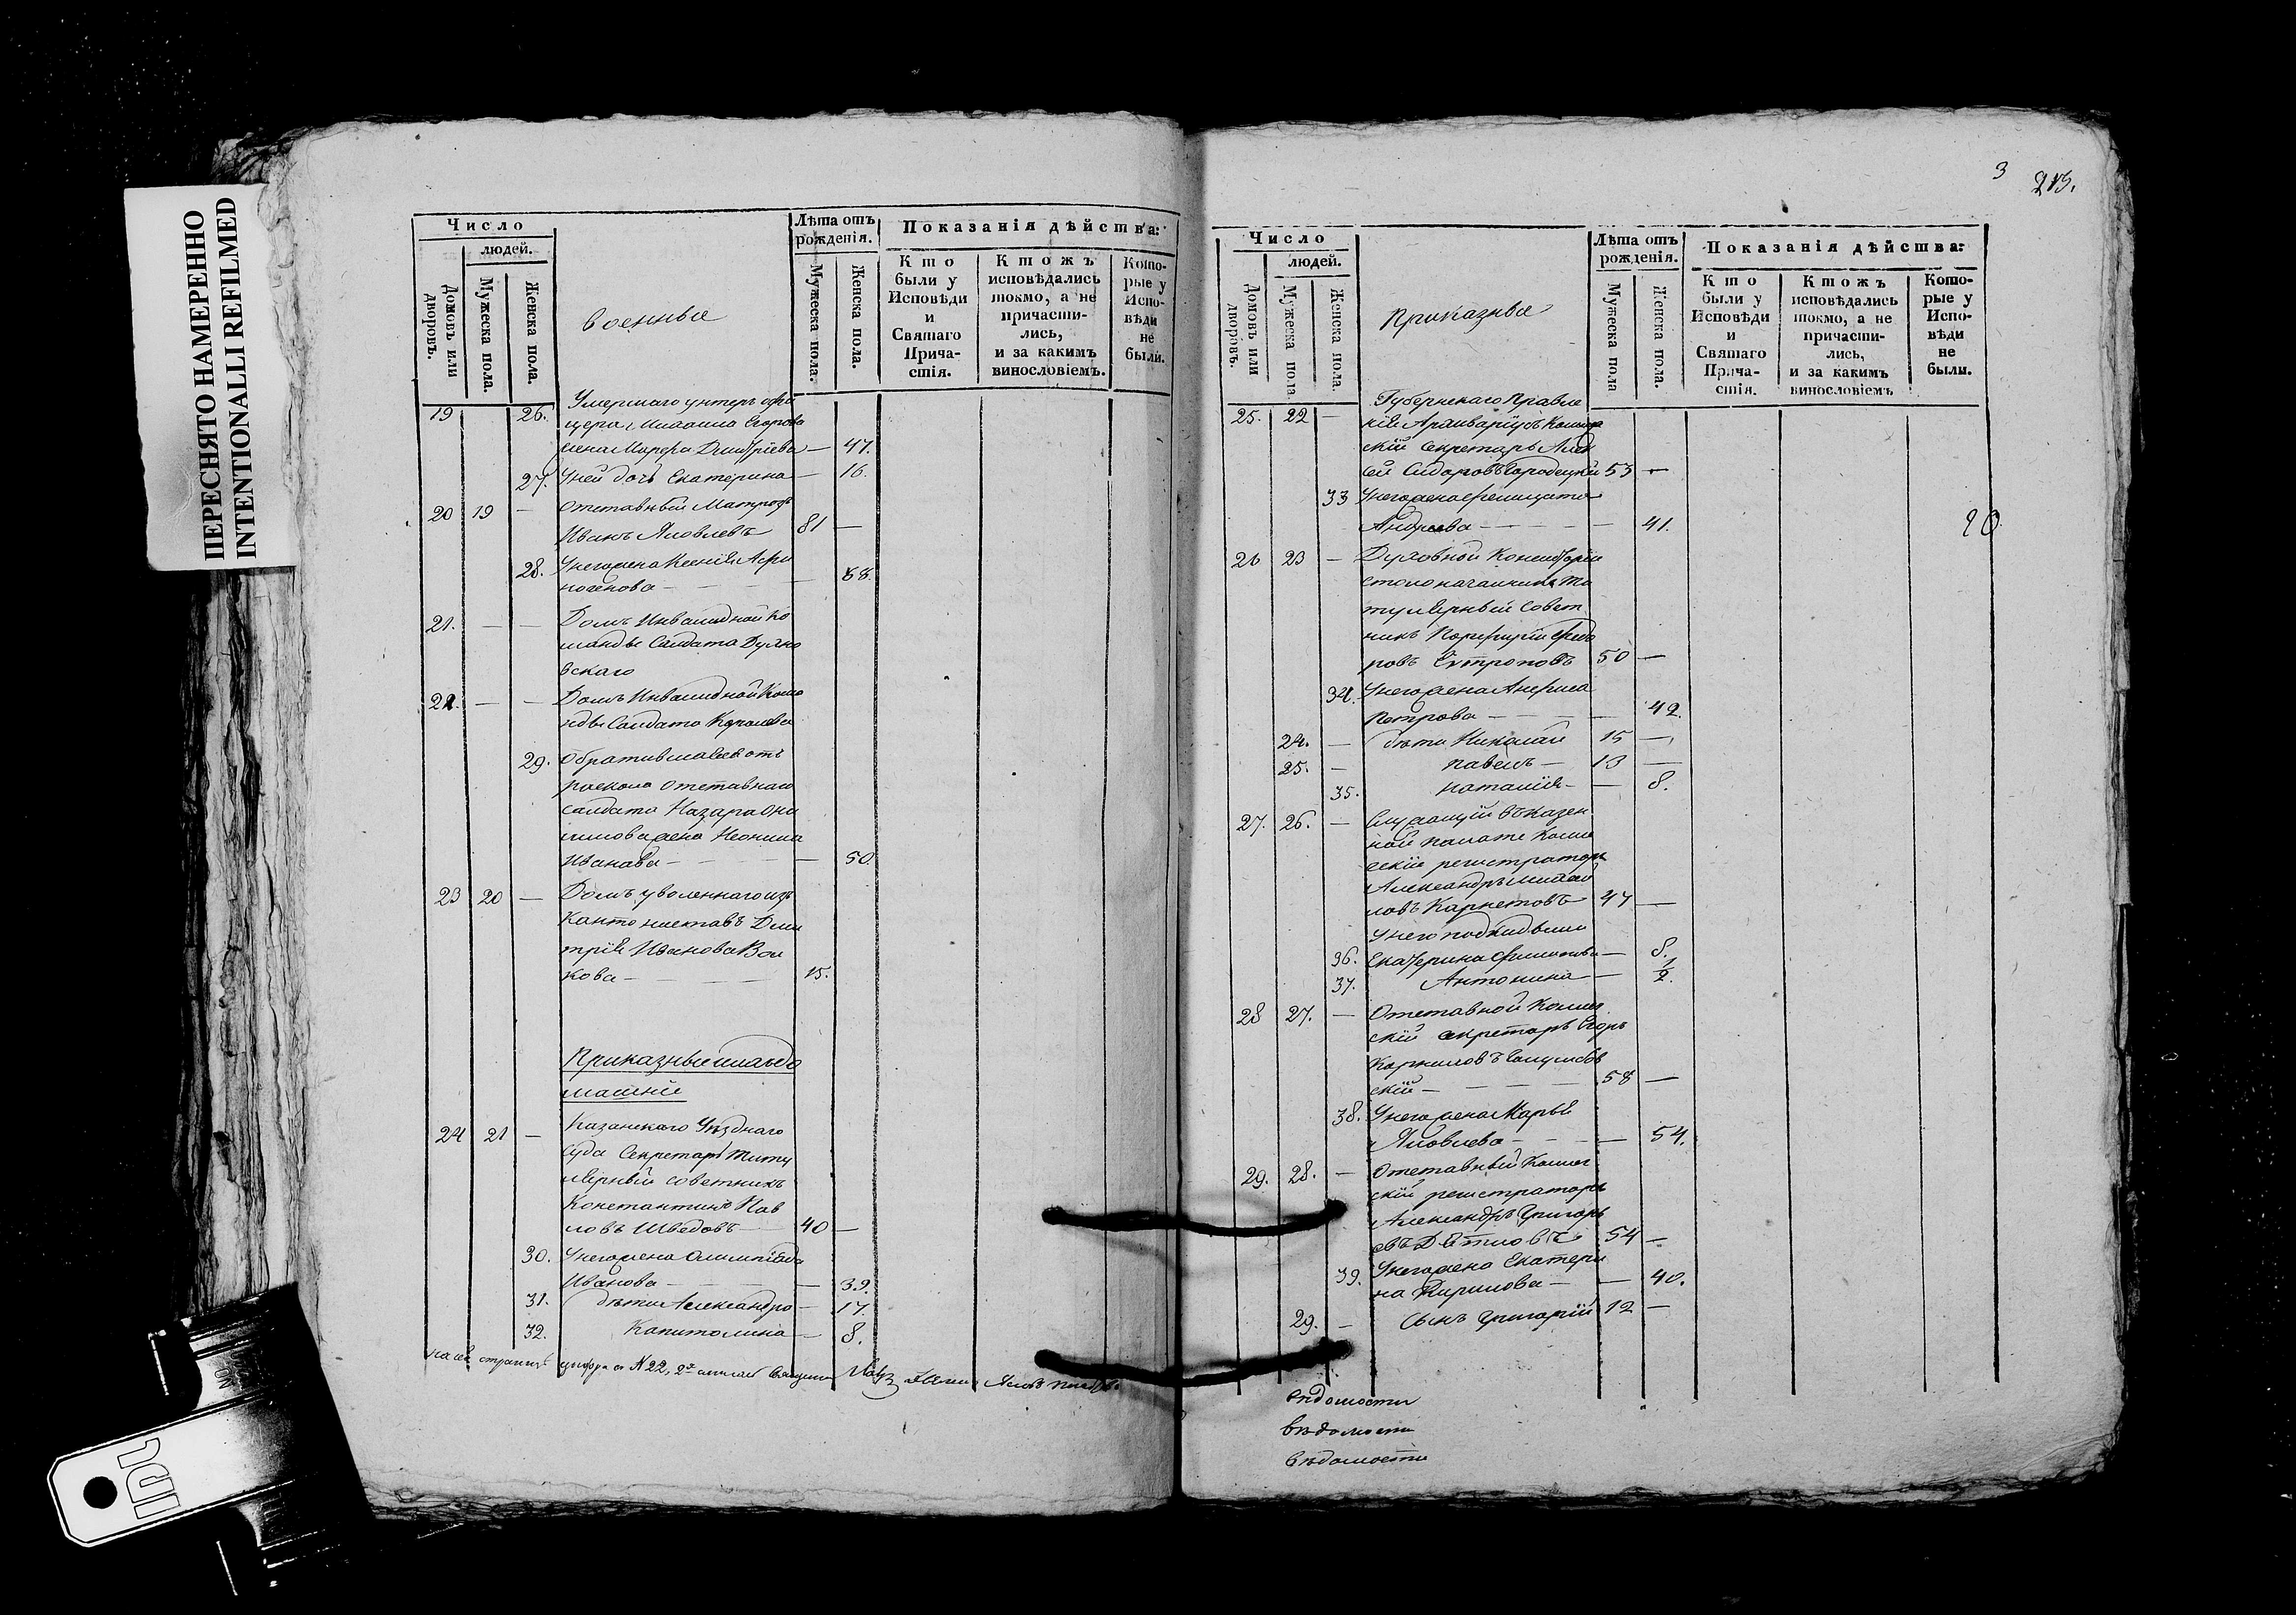 ПЕРЕСНЯТО НАМЕРЕННО
INTENTIONALLI REFILMED
Число
людей.
Домовъ или дворовъ.
Мужеска пола.
Женска пола.
военныя
Лѣта отъ рожденія.
Мужеска пола.
Женска пола.
Показанія дѣйства:
Кто были у Исповѣди и Святаго Прича-стія.
Ктожъ исповѣдались токмо, а не причасти-лись, и за какимъ винословіемъ.
Кото-рые у Испо-вѣди не были.
19 26. Умершаго унтеръ офи
цера Михаила Егорова
жена Марфа Дмитріева — 47.
27. У ней дочь Екатерина — 16.
20 19 — Отставный Матрозъ
Иванъ Яковлевъ 81 —
28. У него жена Ксенія Афи
ногенова — — — 68.
21. — — Домъ Инвалидной Ко
манды Салдата
вскаго
22. — — Домъ Инвалидной Кома
нды Салдата
29. Обратившаяся отъ
раскола отставнаго
салдата Назара Они
симова жена Неонила
Иванова — — — 50.
23 20 — Домъ уволеннаго изъ
Кантонистовъ Дми
трія Иванова Вол
кова — — — 15.
Приказныя и ихъ до
машніе
24 21 — Казанскаго Уѣзднаго
Суда Секретарь Титу
лярный советникъ
Константинъ Пав
ловъ Шведовъ — 40 —
30. У него жена Олимпіада
Иванова — — — 39.
31. дѣти Александра — 17.
32. Капитолина — 8.
на сей страницѣ цыфра № 22, 2я
3
213.
Число
людей.
Домовъ или дворовъ.
Мужеска пола
Женска пола.
приказныя
Лѣта отъ рожденія.
Мужеска пола
Женска пола.
Показанія дѣйства:
Кто были у Исповѣди и Святаго Прича-стія.
Ктожъ исповѣдались токмо, а не причасти-лись, и за какимъ винословіемъ
Кото-рые у Испо-вѣди не были.
25. 22 — Губернскаго Правле
нія Архиваріусъ Коллеж
скій секретарь Алек
сей Сидоровъ Городецкій 53 —
33 У него жена Фелицата
Андреева — — — 41.
20
26 23 — Духовной Консисторіи
столоначалникъ Ти
тулярный Совет
никъ Порфирій Федо
ровъ Евтроповъ 50 —
34. У него жена Анфиса
Петрова — — — 42.
24. — дѣти Николай 15 —
25. — павелъ — 13 —
35. наталія — — 8.
27. 26. — Служащій въ казен
ной палате Колле
жскій регистраторъ
Александръ Михай
ловъ Карпетовъ 47 —
У него подкидыши
36. Екатерина — 8.
37. Антонина — 1/2.
28 27. — Отставной Коллеж
скій секретарь Егоръ
Корниловъ
скій — — — 58 —
38. У него жена Марья
Яковлева — — — 54.
29. 28. — Отставный Коллеж
скій регистраторъ
Александръ Григорь
евъ 54 —
39. У него жена Екатери
на Кирилова — — 40.
29. — Сынъ Григорій 12 —
вѣдомости
вѣдомости
вѣдомости